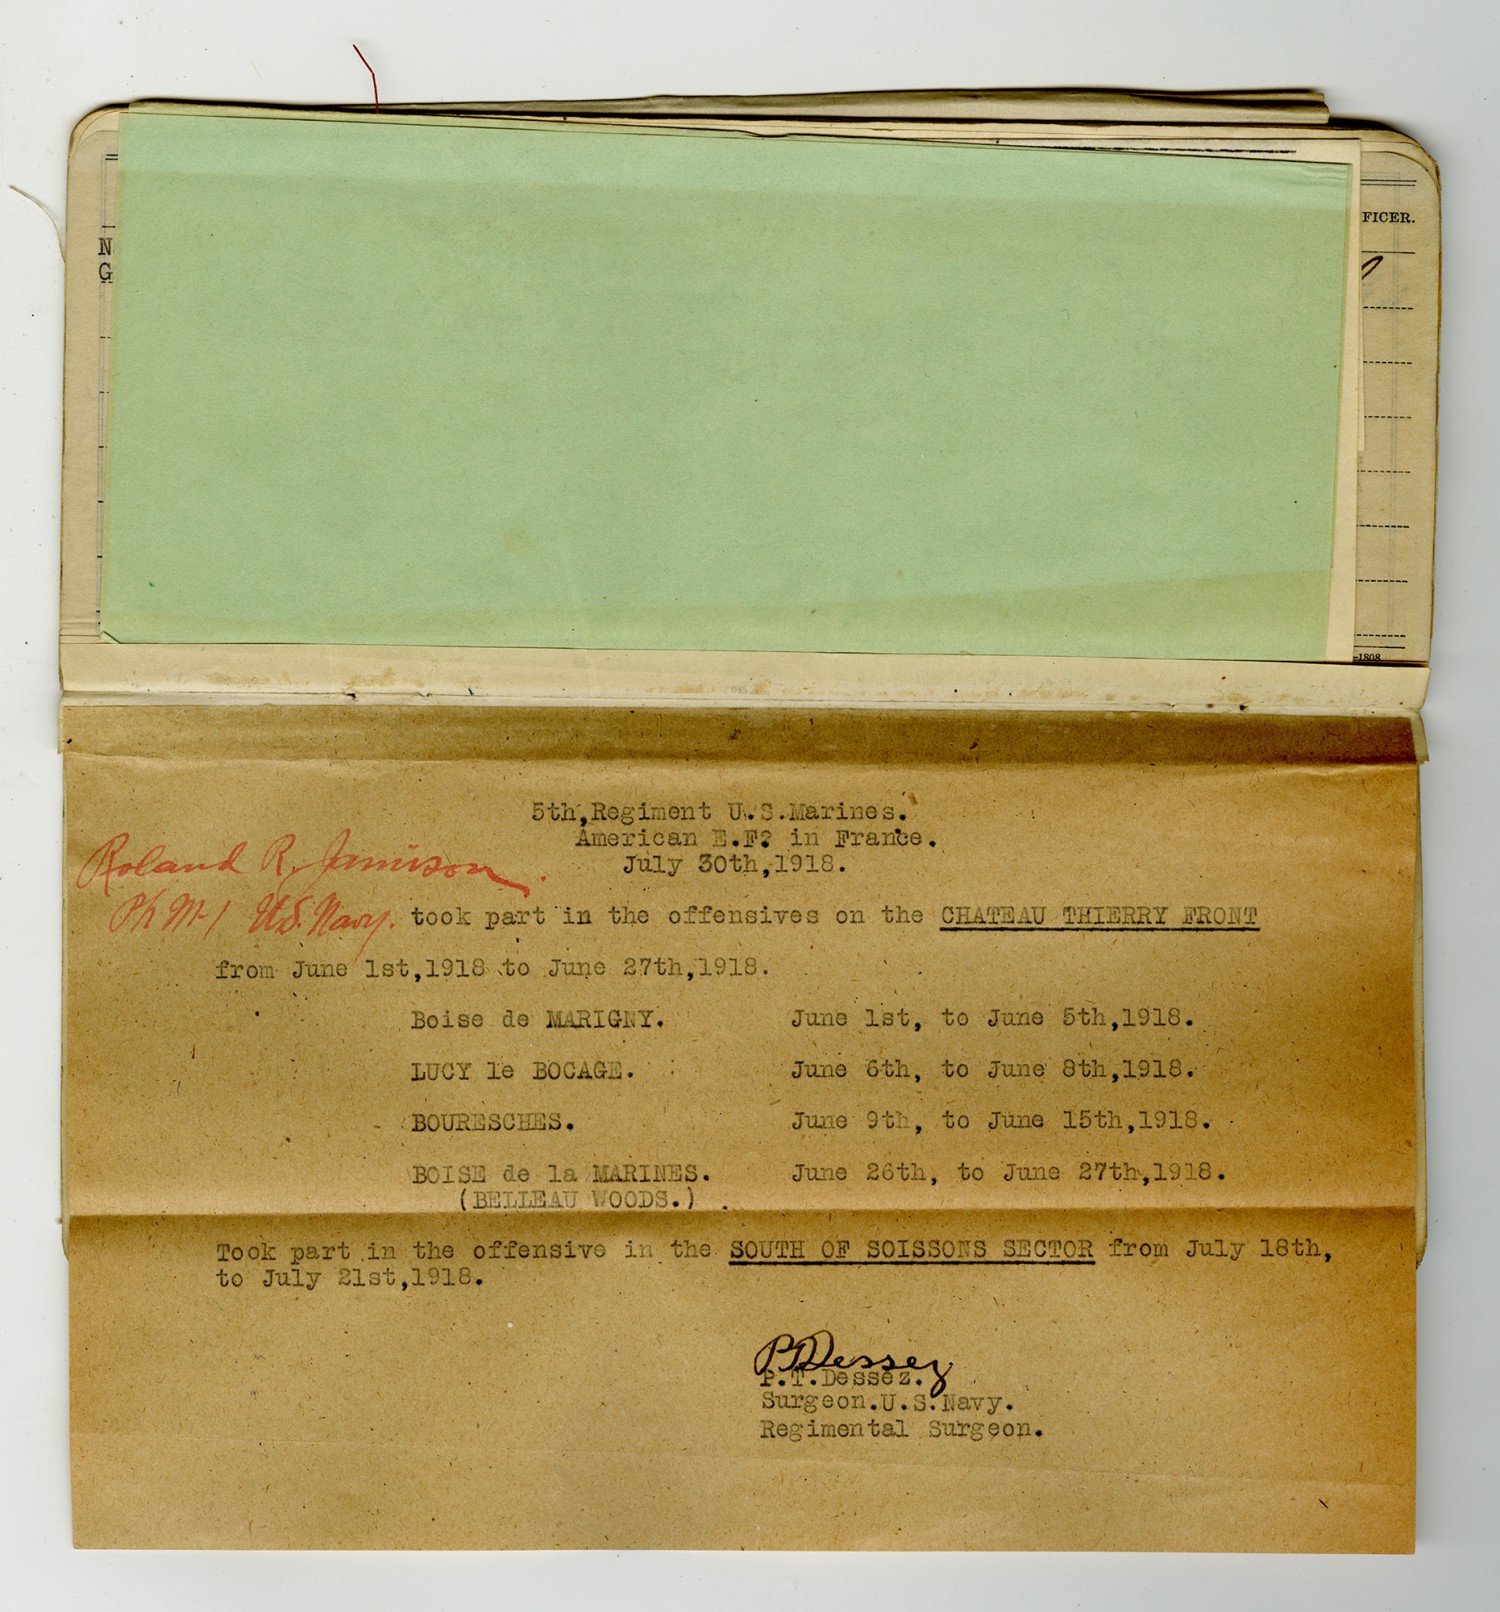 FICER.
N
G
-1808
5th,Regiment U.S.Marines.
American E.F? in France.
July 30th,1918.
Roland R. Jamison.
Ph M-1 U.S. Navy. took part in the offensives on the CHATEAU THIERRY FRONT
from June 1st,1918 to June 27th,1918.
Boise de MARIGNY. June 1st, to June 5th,1918.
LUCY le BOCAGE. June 6th, to June 8th,1918.
BOURESCHES. June 9th, to June 15th,1918.
BOISE de la MARINES. June 26th, to June 27th,1918.
(BELLEAU WOODS.)
Took part in the offensive in the SOUTH OF SOISSONS SECTOR from July 18th,
to July 21st,1918.
PTDessez
P.T.Dessez.
Surgeon.U.S.Navy.
Regimental Surgeon.